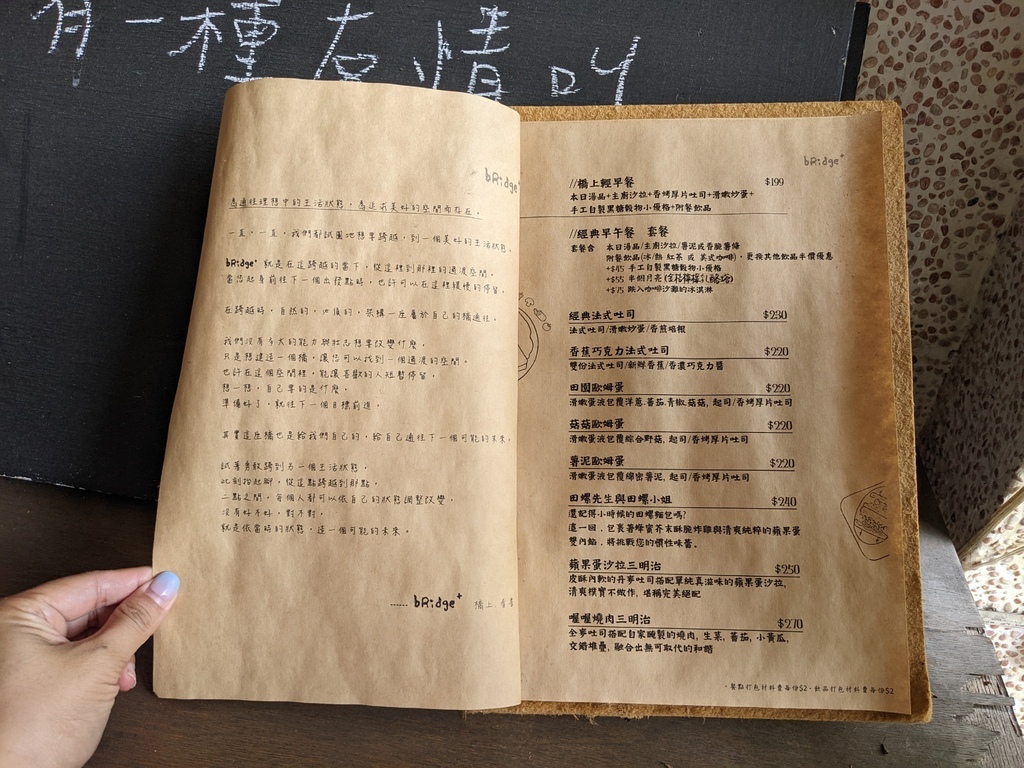 有一種友情叫
bRidge+
為通往理想中的生活狀態，為追求美好的空間而存在。
一直，一直，我們都試圖地想要跨越，到一個美好的生活狀態。
bRidge+ 就是在這跨越的當下，從這裡到那裡的過渡空間。
當您起身前往下一個出發點時，也許可以在這裡緩慢的停留。
在跨越時，自然的，
架構一座屬於自己的橋通往。
我們沒有多大的能力與壯志想要改變什麼。
只是想建造一個橋，讓您可以找到一個過渡的空間。
也許在這個空間裡，能讓喜歡的人短暫停留。
想一想，自己要的是什麼。
準備好了，就往下一個目標前進。
其實這座橋也是給我們自己的，給自己通往下一個可能的未來。
試著勇敢跨到另一個生活狀態。
此刻抬起腳，從這點跨越到那點。
二點之間，每個人都可以依自己的狀態調整改變。
沒有好不好，對不對，
就是依當時的狀態，造一個可能的未來。
...... bRidge+ 橋上
bRidge+
//橋上輕早餐 $199
本日湯品+主廚沙拉+香烤厚片吐司+滑嫩炒蛋+
手工自製黑糖穀物小優格+附餐飲品
//經典早午餐 套餐
套餐含 本日湯品/主廚沙拉/薯泥或香脆薯條
附餐飲品(冰/熱 紅茶 或 美式咖啡)，更換其他飲品半價優惠
+$45 手工自製黑糖穀物小優格
+$55 半個月亮
+$75 跌入咖啡沙灘的冰淇淋
經典法式吐司 $230
法式吐司/滑嫩炒蛋/香煎培根
香蕉巧克力法式吐司 $220
雙份法式吐司/新鮮香蕉/香濃巧克力醬
田園歐姆蛋 $220
滑嫩蛋液包覆洋蔥,蕃茄,青椒,菇菇, 起司/香烤厚片吐司
菇菇歐姆蛋 $220
滑嫩蛋液包覆綜合野菇, 起司/香烤厚片吐司
薯泥歐姆蛋 $220
滑嫩蛋液包覆綿密薯泥, 起司/香烤厚片吐司
田螺先生與田螺小姐 $240
還記得小時候的田螺麵包嗎?
這一回，包裹著蜂蜜芥末酥脆炸雞與清爽純粹的蘋果蛋
雙內餡，將挑戰您的慣性味蕾。
蘋果蛋沙拉三明治 $250
皮酥內軟的丹麥吐司搭配單純真滋味的蘋果蛋沙拉,
清爽樸實不做作, 堪稱完美絕配
喔喔燒肉三明治 $270
全麥吐司搭配自家醃製的燒肉, 生菜, 蕃茄, 小黃瓜,
交錯堆疊, 融合出無可取代的和諧
·餐點打包材料費每份$2·飲品打包材料費每份$2